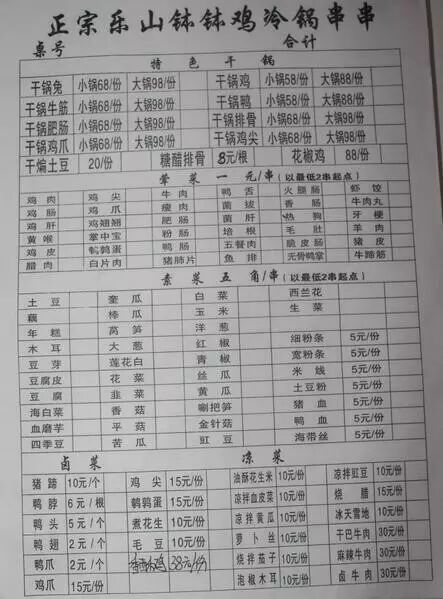 正宗乐山钵钵鸡冷锅串串
桌号 合计
特色干锅
干锅兔 小锅68/份 大锅98/份 干锅鸡 小锅58/份 大锅88/份
干锅牛筋 小锅68/份 大锅98/份 干锅鸭 小锅58/份 大锅88/份
干锅肥肠 小锅68/份 大锅98/份 干锅排骨 小锅68/份 大锅98/份
干锅鸡爪 小锅68/份 大锅98/份 干锅鸡尖 小锅68/份 大锅98/份
干煸土豆 20/份 糖醋排骨 8元/根 花椒鸡 88/份
荤菜一元/串(以最低2串起点)
鸡肉 鸡尖 牛肉 鸭舌 火腿肠 虾饺
鸡肠 鸡爪 瘦肉 菌拔 香肠 牛肉丸
鸡肝 鸡翅翅 肥肠 菌肝 热狗 牙梗
黄喉 掌中宝 粉肠 培根 毛肚 羊肉
鸡皮 鹌鹑蛋 鸭肠 五餐肉 脆皮肠 猪皮
腊肉 白片肉 猪肺片 鱿鱼 无骨鸭掌 牛蹄筋
素菜五角/串(以最低2串起点)
土豆 奎瓜 白菜 西兰花
藕 棒瓜 玉米 生菜
年糕 莴笋 洋葱
木耳 大葱 红椒 细粉条 5元/份
豆芽 莲花白 青椒 宽粉条 5元/份
豆腐皮 花菜 丝瓜 米线 5元/份
豆腐 韭菜 黄瓜 土豆粉 5元/份
海白菜 香菇 唰把笋 猪血 5元/份
血磨芋 平菇 金针菇 鸭血 5元/份
四季豆 苦瓜 豇豆 海带丝 5元/份
卤菜 凉菜
猪蹄 10元/个 鸡尖 15元/份 油酥花生米 10元/份 凉拌豇豆 10元/份
鸭脖 6元/根 鹌鹑蛋 15元/份 凉拌血皮菜 10元/份 烧腊 15元/份
鸭头 5元/个 煮花生 10元/份 凉拌黄瓜 10元/份 冰天雪地 10元/份
鸭翅 2元/个 毛豆 10元/份 萝卜丝 10元/份 干巴牛肉 30元/份
鸭爪 2元/个 38元/份 烧拌茄子 10元/份 麻辣牛肉 30元/份
鸡爪 15元/份 泡椒木耳 10元/份 卤牛肉 30元/份